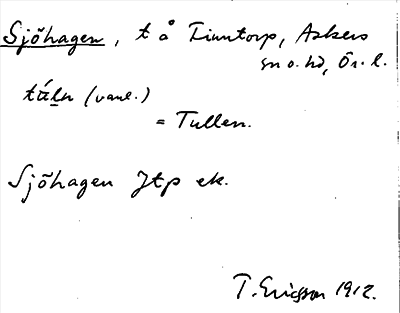 Sjöhagen, t å Finntorp, Askers
sn o. hd, Ör. l.
tú̱ln (vanl.)
= Tullen.
Sjöhagen Jtp ek.
T. Ericsson 1912.